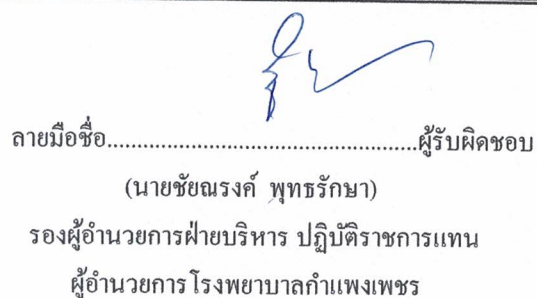 ลายมือชื่อ....................................................ผู้รับผิดชอบ
(นายชัยณรงค์ พุทธรักษา)
รองผู้อำนวยการฝ่ายบริหาร ปฏิบัติราชการแทน
ผู้อำนวยการโรงพยาบาลกำแพงเพชร